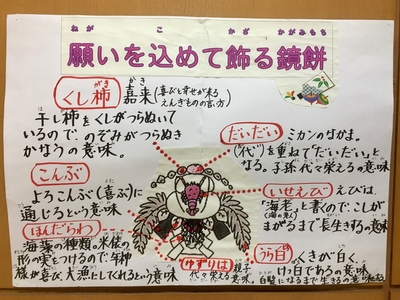 願いを込めて飾る鏡餅
ねが こ かざ かがみもち
くし柿 嘉来(喜びと幸せが来る
がき かき えんぎものの言い方)
干し柿をくしがつらぬいて
いるので、のぞみがつらぬき
かなうの意味。
こんぶ
よろこんぶ(喜ぶ)に
通じるという意味
ほんだわら
海藻の種類。米俵の
形の実をつけるので年神
様が喜び、大漁にしてくれるという意味
だいだい ミカンのなかま。
("代")を重ねて「だいだい」と
なる。子孫代々栄えるの意味。
いせえび えびは、
「海老」と書くので、こしが
(海の老人)
まがるまで長生きするの意味。
うら白 くきが白く、
けっ白であるの意味
白髪になるまで生きるの意味もある
ゆずりは 親子
代々栄える 意味